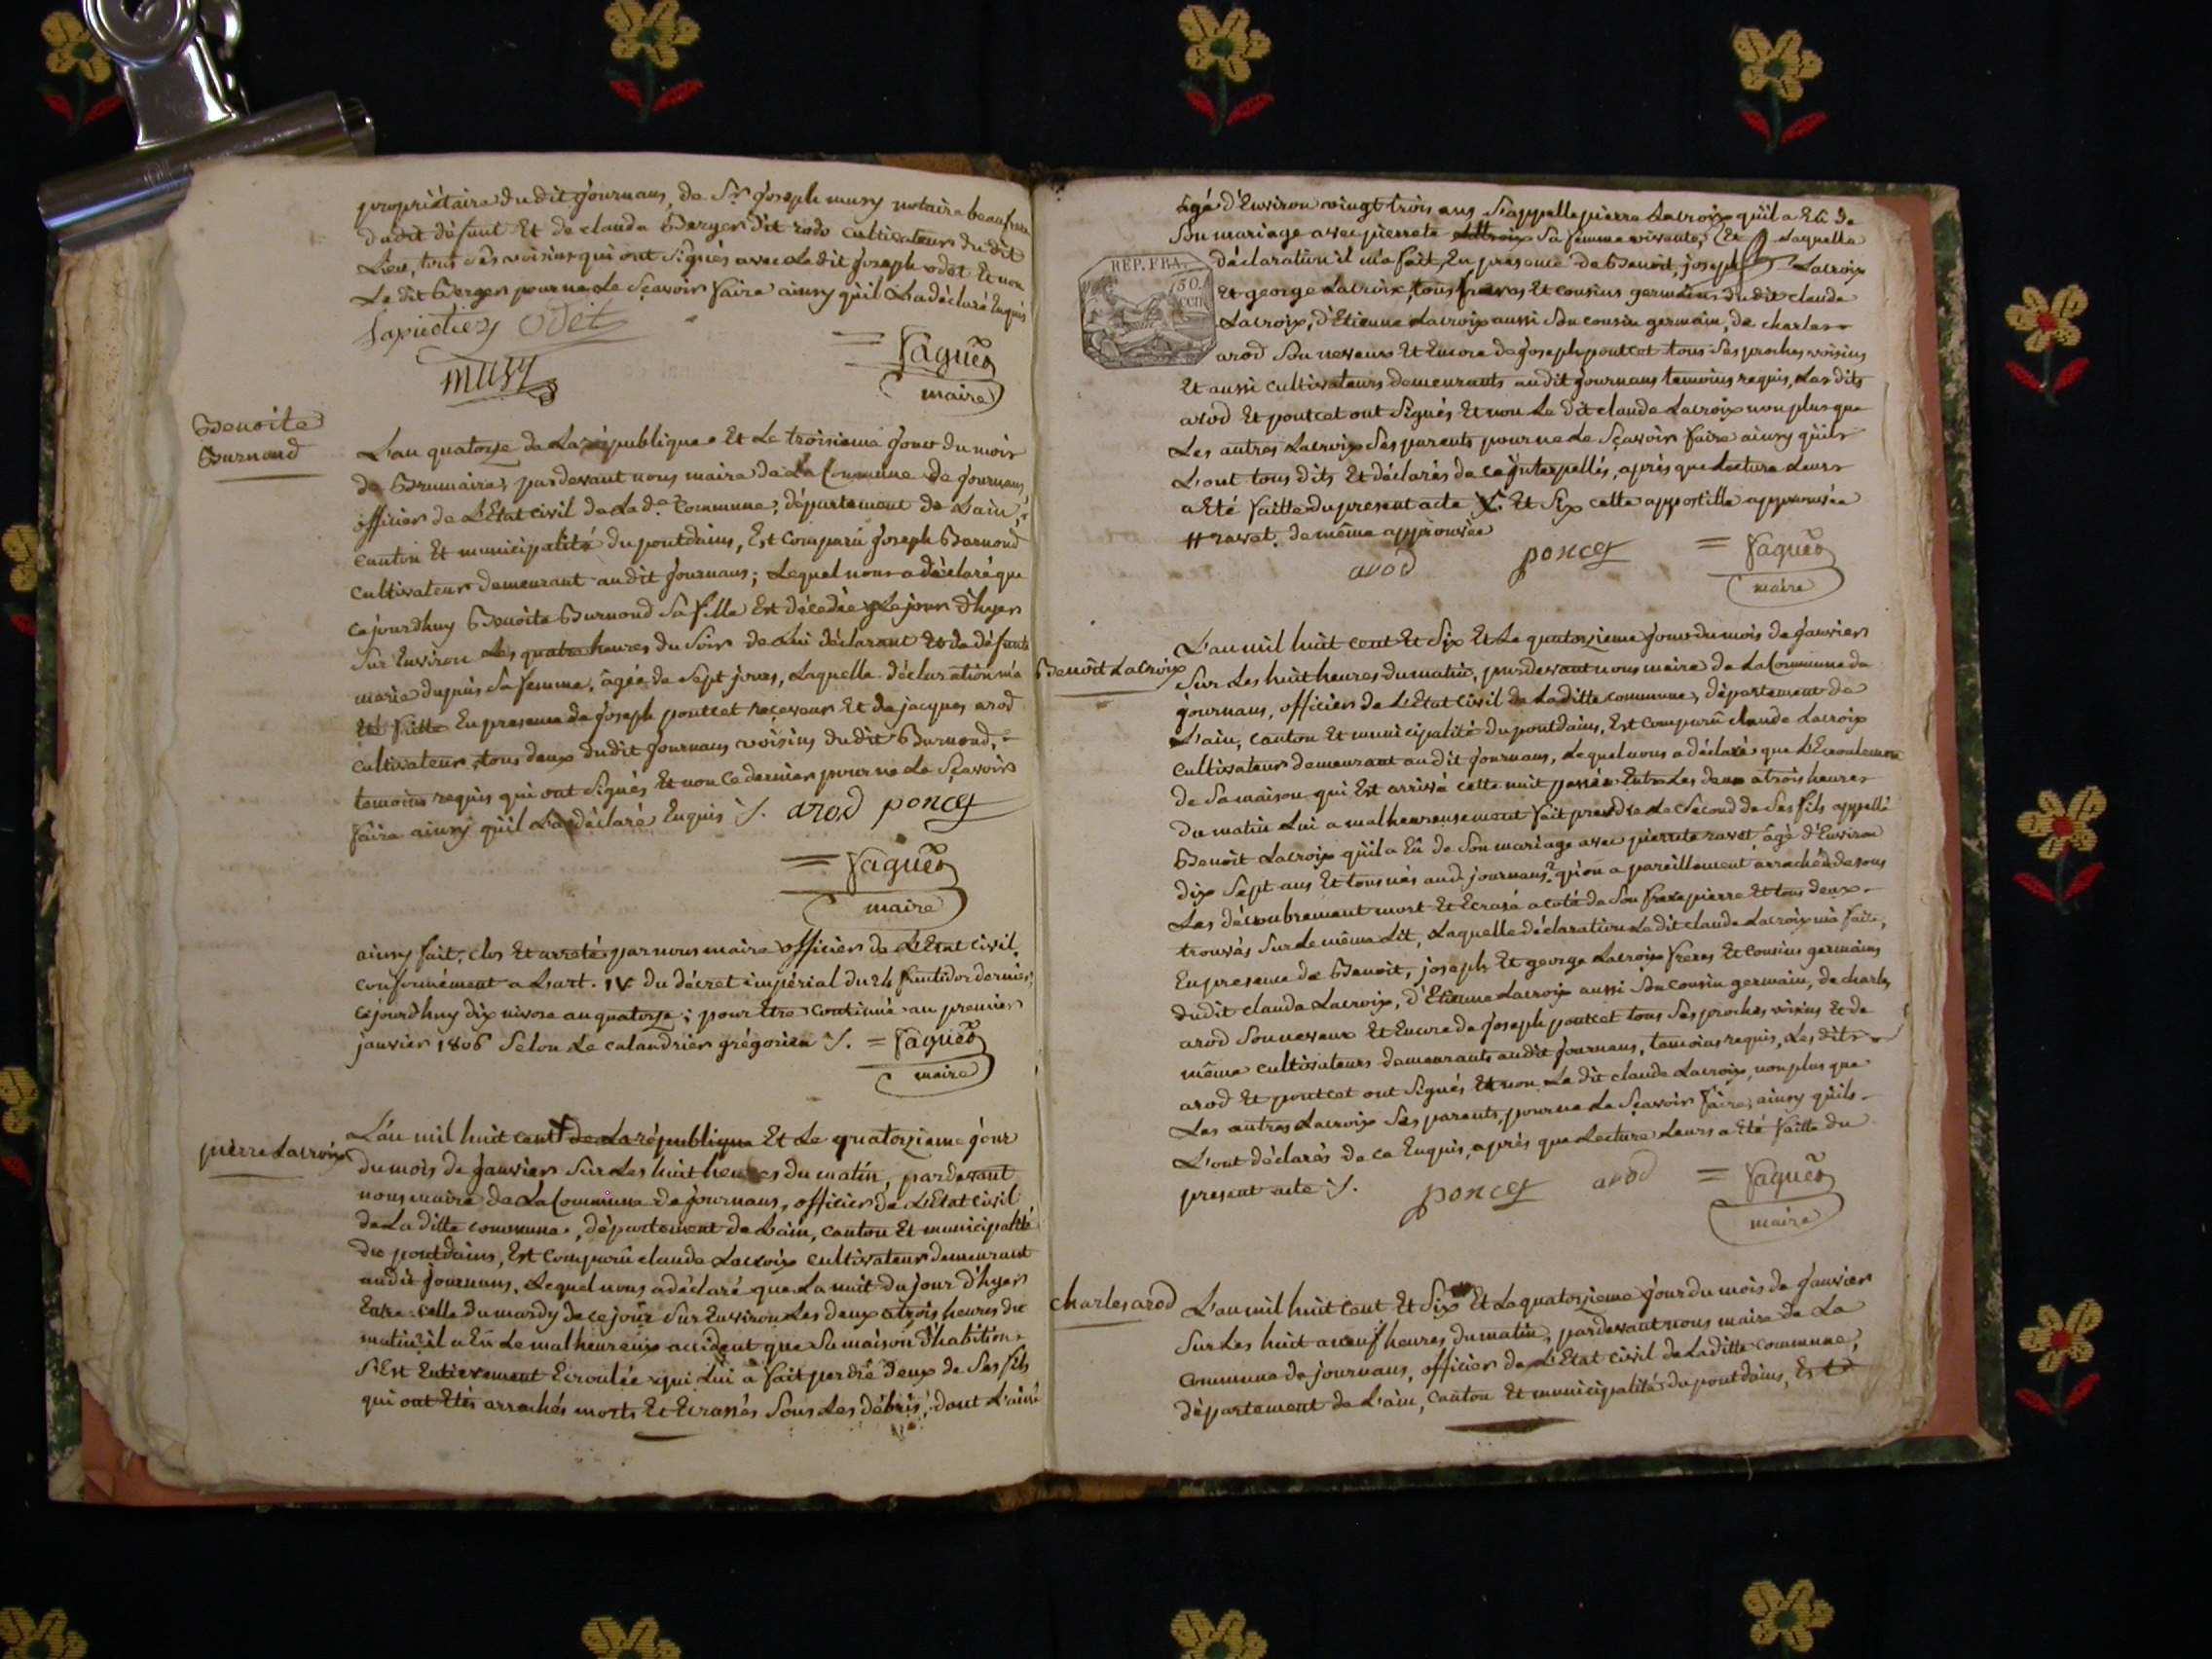 propriétaire dudit journans, de Sr. joseph musy notaire beaufrere
dudit défunt Et de claude Berger dit rodo cultivateur du dit
Lieu, tous Ses voisins qui ont Signés avec Ledit joseph odet Et non
Le dit Berger pour ne Le Sçavoir faire ainsy qu'il L'a déclaré Enquis
odet
musy
= Vaguet
maire
Benoite
Burnond
L'an quatorze de La république Et Le troisieme jour du mois
de Brumaire, pardevant nous maire de La Commune de journans,
officier de L'Etat civil de La de. Commune, département de L'ain,
canton Et municipalité du pontdains, Est Comparu joseph Burnond
cultivateur demeurant audit journans; Lequel nous a déclaré que
cejourdhuy Benoite Burnond Sa fille Est décedée Le jour d'hyer
Sur Environ Les quatre heures du Soir de Lui déclarant Et de défunte
marie dupuis Sa femme, âgée de Sept jours, Laquelle déclaration m'a
Eté faitte En presence de joseph pontcet receveur Et de jacques arod
cultivateur, tous deux dudit journans voisins dudit Burnond,
temoins requis qui ont Signés Et non Ce dernier pour ne Le Sçavoir
faire ainsy qu'il L'a déclaré Enquis ./. arod poncet
= Vaguet
maire
ainsy fait, clos Et arreté par nous maire officier de L'Etat civil,
conformément a L'art. IV du décret impérial du 24 fructidor dernier,
cejourdhuy dix nivose an quatorze; pour Etre Continué au premier
janvier 1806 Selon Le calandrier grégorien ./. = Vaguet
maire
pierre Lacroix
L'an mil huit cent de La république Et Le quatorzieme jour
du mois de janvier Sur Les huit heures du matin, pardevant
nous maire de La Commune de journans, officier de L'Etat civil
de La ditte commune, département de L'ain, canton Et municipalité
du pontdains, Est Comparû claude Lacroix cultivateur demeurant
audit journans, Lequel nous a déclaré que La nuit du jour d'hyer
Entre celle du mardy de ce jour Sur Environ Les deux a trois heures du
matin, il a Eû Le malheureux accident que Sa maison d'habition
S'Est Entierement Ecroulée qui Lui a fait perdre deux de Ses fils
qui ont Etés arrachés morts Et Ecrasés Sous Les débris, dont L'ainé
âgé d'Environ vingt trois ans S'appelle pierre Lacroix qu'il a Eû de
Son mariage avec pierrete Lacroix Sa femme vivante, Et Laquelle
REP. FRA.
déclaration il m'a fait, En presence de Benoit, joseph Lacroix
Et george Lacroix, tous freres Et cousins germains dudit claude
Lacroix, d'Etienne Lacroix aussi Son cousin germain, de charles
arod Son neveux Et Encore de joseph pontcet tous Ses proches voisins
Et aussi cultivateurs demeurants audit journans temoins requis, Les dits
arod Et pontcet ont Signés Et non Le dit claude Lacroix non plus que
Les autres Lacroix Ses parents pour ne Le Sçavoir faire ainsy qu'ils
L'ont tous dits Et déclarés de ce jnterpellés, après que Lecture Leurs
a Eté faitte du present acte ./. Et Six cette appostille approuvée
# ravet, de même approuvée
arod poncet = Vaguet
maire
Benoit Lacroix
L'an mil huit cent Et Six Et Le quatorzieme jour du mois de janvier
Sur Les huit heures du matin, pardevant nous maire de La Commune de
journans, officier de L'Etat civil de La ditte commune, département de
L'ain, canton Et municipalité du pontdains, Est comparû claude Lacroix
cultivateur demeurant audit journans, Lequel nous a déclaré que L'Ecroulement
de Sa maison qui Est arrivé cette nuit passée Entre Les deux a trois heures
du matin Lui a malheureusement fait prendre Le Second de Ses fils appellé
Benoit Lacroix qu'il a Eû de Son mariage avec pierrete ravet, âgé d'Environ
dix Sept ans Et tous nés aud. journans, qu'on a pareillement arraché de Sous
Les décombrement mort Et Ecrasé a coté de Son frere pierre Et tous deux
trouvés Sur Le même Lit, Laquelle déclaration Le dit claude Lacroix m'a faite,
En presence de Benoit, joseph Et george Lacroix freres Et Cousins germains
dudit claude Lacroix, d'Etienne Lacroix aussi Son cousin germain, de charles
arod Son neveux Et Encore de joseph pontcet tous Ses proches voisins Et de
même cultivateurs demeurants audit journans, temoins requis, Les dits
arod Et pontcet ont Signés Et non Le dit claude Lacroix, non plus que
Les autres Lacroix Ses parents, pour ne Le Sçavoir faire, ainsy qu'ils
L'ont déclarés de ce Enquis, après que Lecture Leurs a Eté faitte du
present acte ./. poncet arod = Vaguet
maire
charles arod
L'an mil huit cent Et Six Et Le quatorzieme jour du mois de janvier
Sur Les huit a neuf heures du matin, pardevant nous maire de La
Commune de journans, officier de L'Etat civil de La ditte commune,
département de L'ain, canton Et municipalité du pontdains, Est